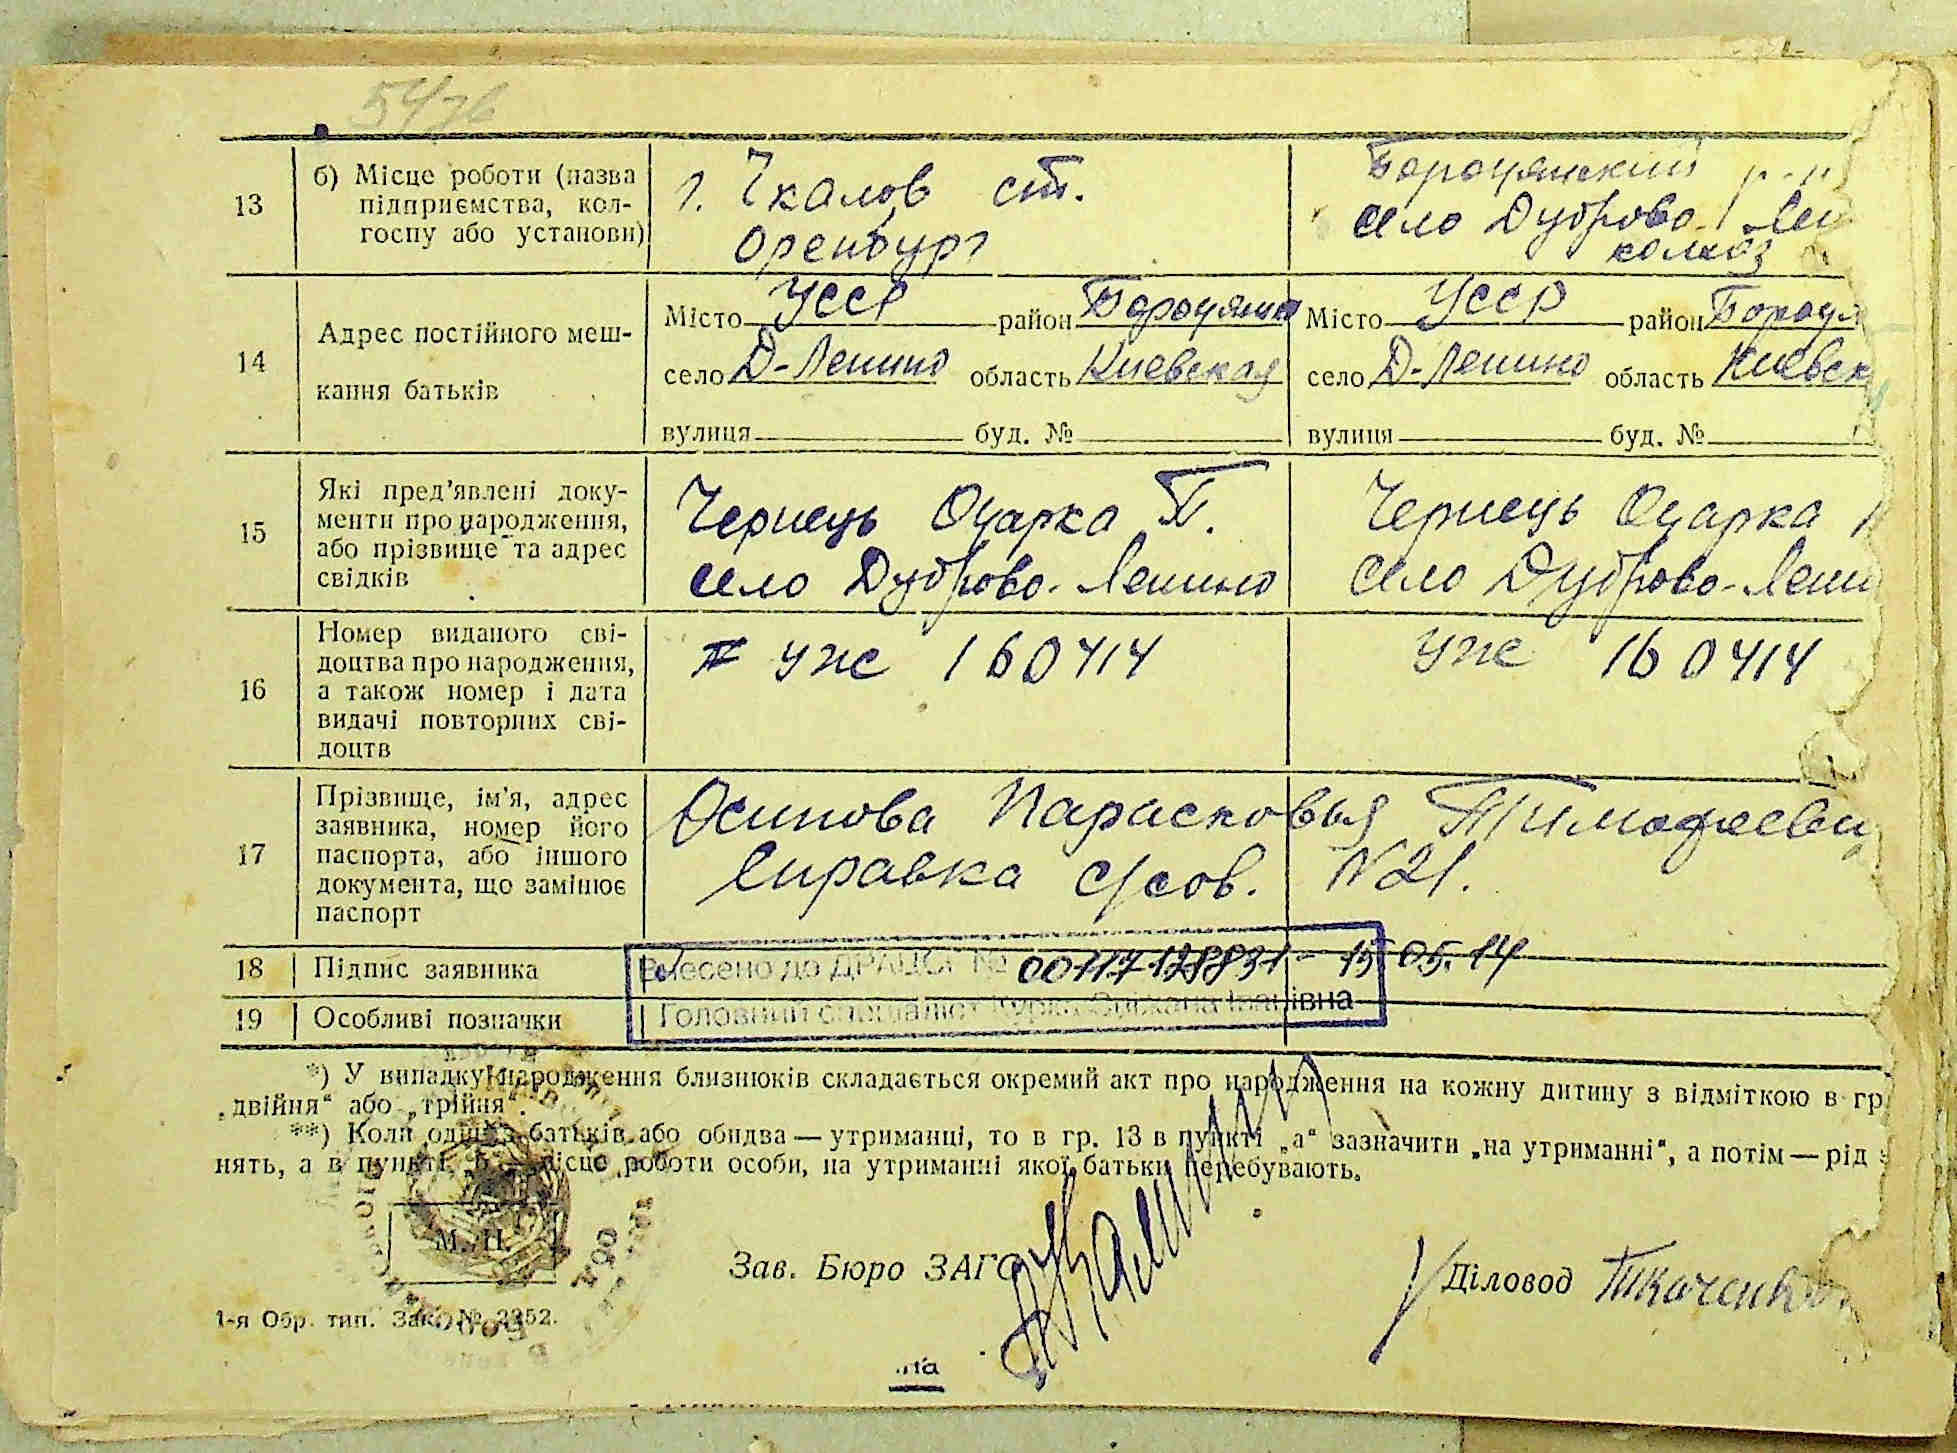 54зв
13
б) Місце роботи (назва
підприємства, кол-
госпу або установи)
г. Чкалов ст.
Оренбург
Бородянский р-н
село Дуброво-Лен
колхоз
14
Адрес постійного меш-
кання батьків
Місто УССР район Бородянск
село Д-Ленино область Киевская
вулиця буд. №
Місто УССР район Бородя
село Д-Ленино область Киевск
вулиця буд. №
15
Які пред'явлені доку-
менти про народження,
або прізвище та адрес
свідків
Чернець Одарка Т.
село Дуброво-Ленино
Чернець Одарка
село Дуброво-Лени
16
Номер виданого сві-
доцтва про народження,
а також номер і дата
видачі повторних сві-
доцтв
УЖ 160414
УЖ 160414
17
Прізвище, ім'я, адрес
заявника, номер його
паспорта, або іншого
документа, що замінює
паспорт
Осипова Парасковья Тимофеевн
Справка с/сов. N 21.
18
Підпис заявника
Внесено до ДРАЦСГ № 00117128831 - 15.05.14
19
Особливі позначки
Головний спеціаліст Сніжана Іванівна
*) У випадку народження близнюків складається окремий акт про народження на кожну дитину з відміткою в гр.
„двійня“ або „трійня“.
**) Коли один з батьків або обидва — утриманці, то в гр. 13 в пункті „а“ зазначити „на утриманні“, а потім — рід з
нять, а в пункті „б“ місце роботи особи, на утриманні якої батьки перебувають.
М. П.
Зав. Бюро ЗАГС
Діловод Ткаченко
1-я Обр. тип. Зак. № 2252.